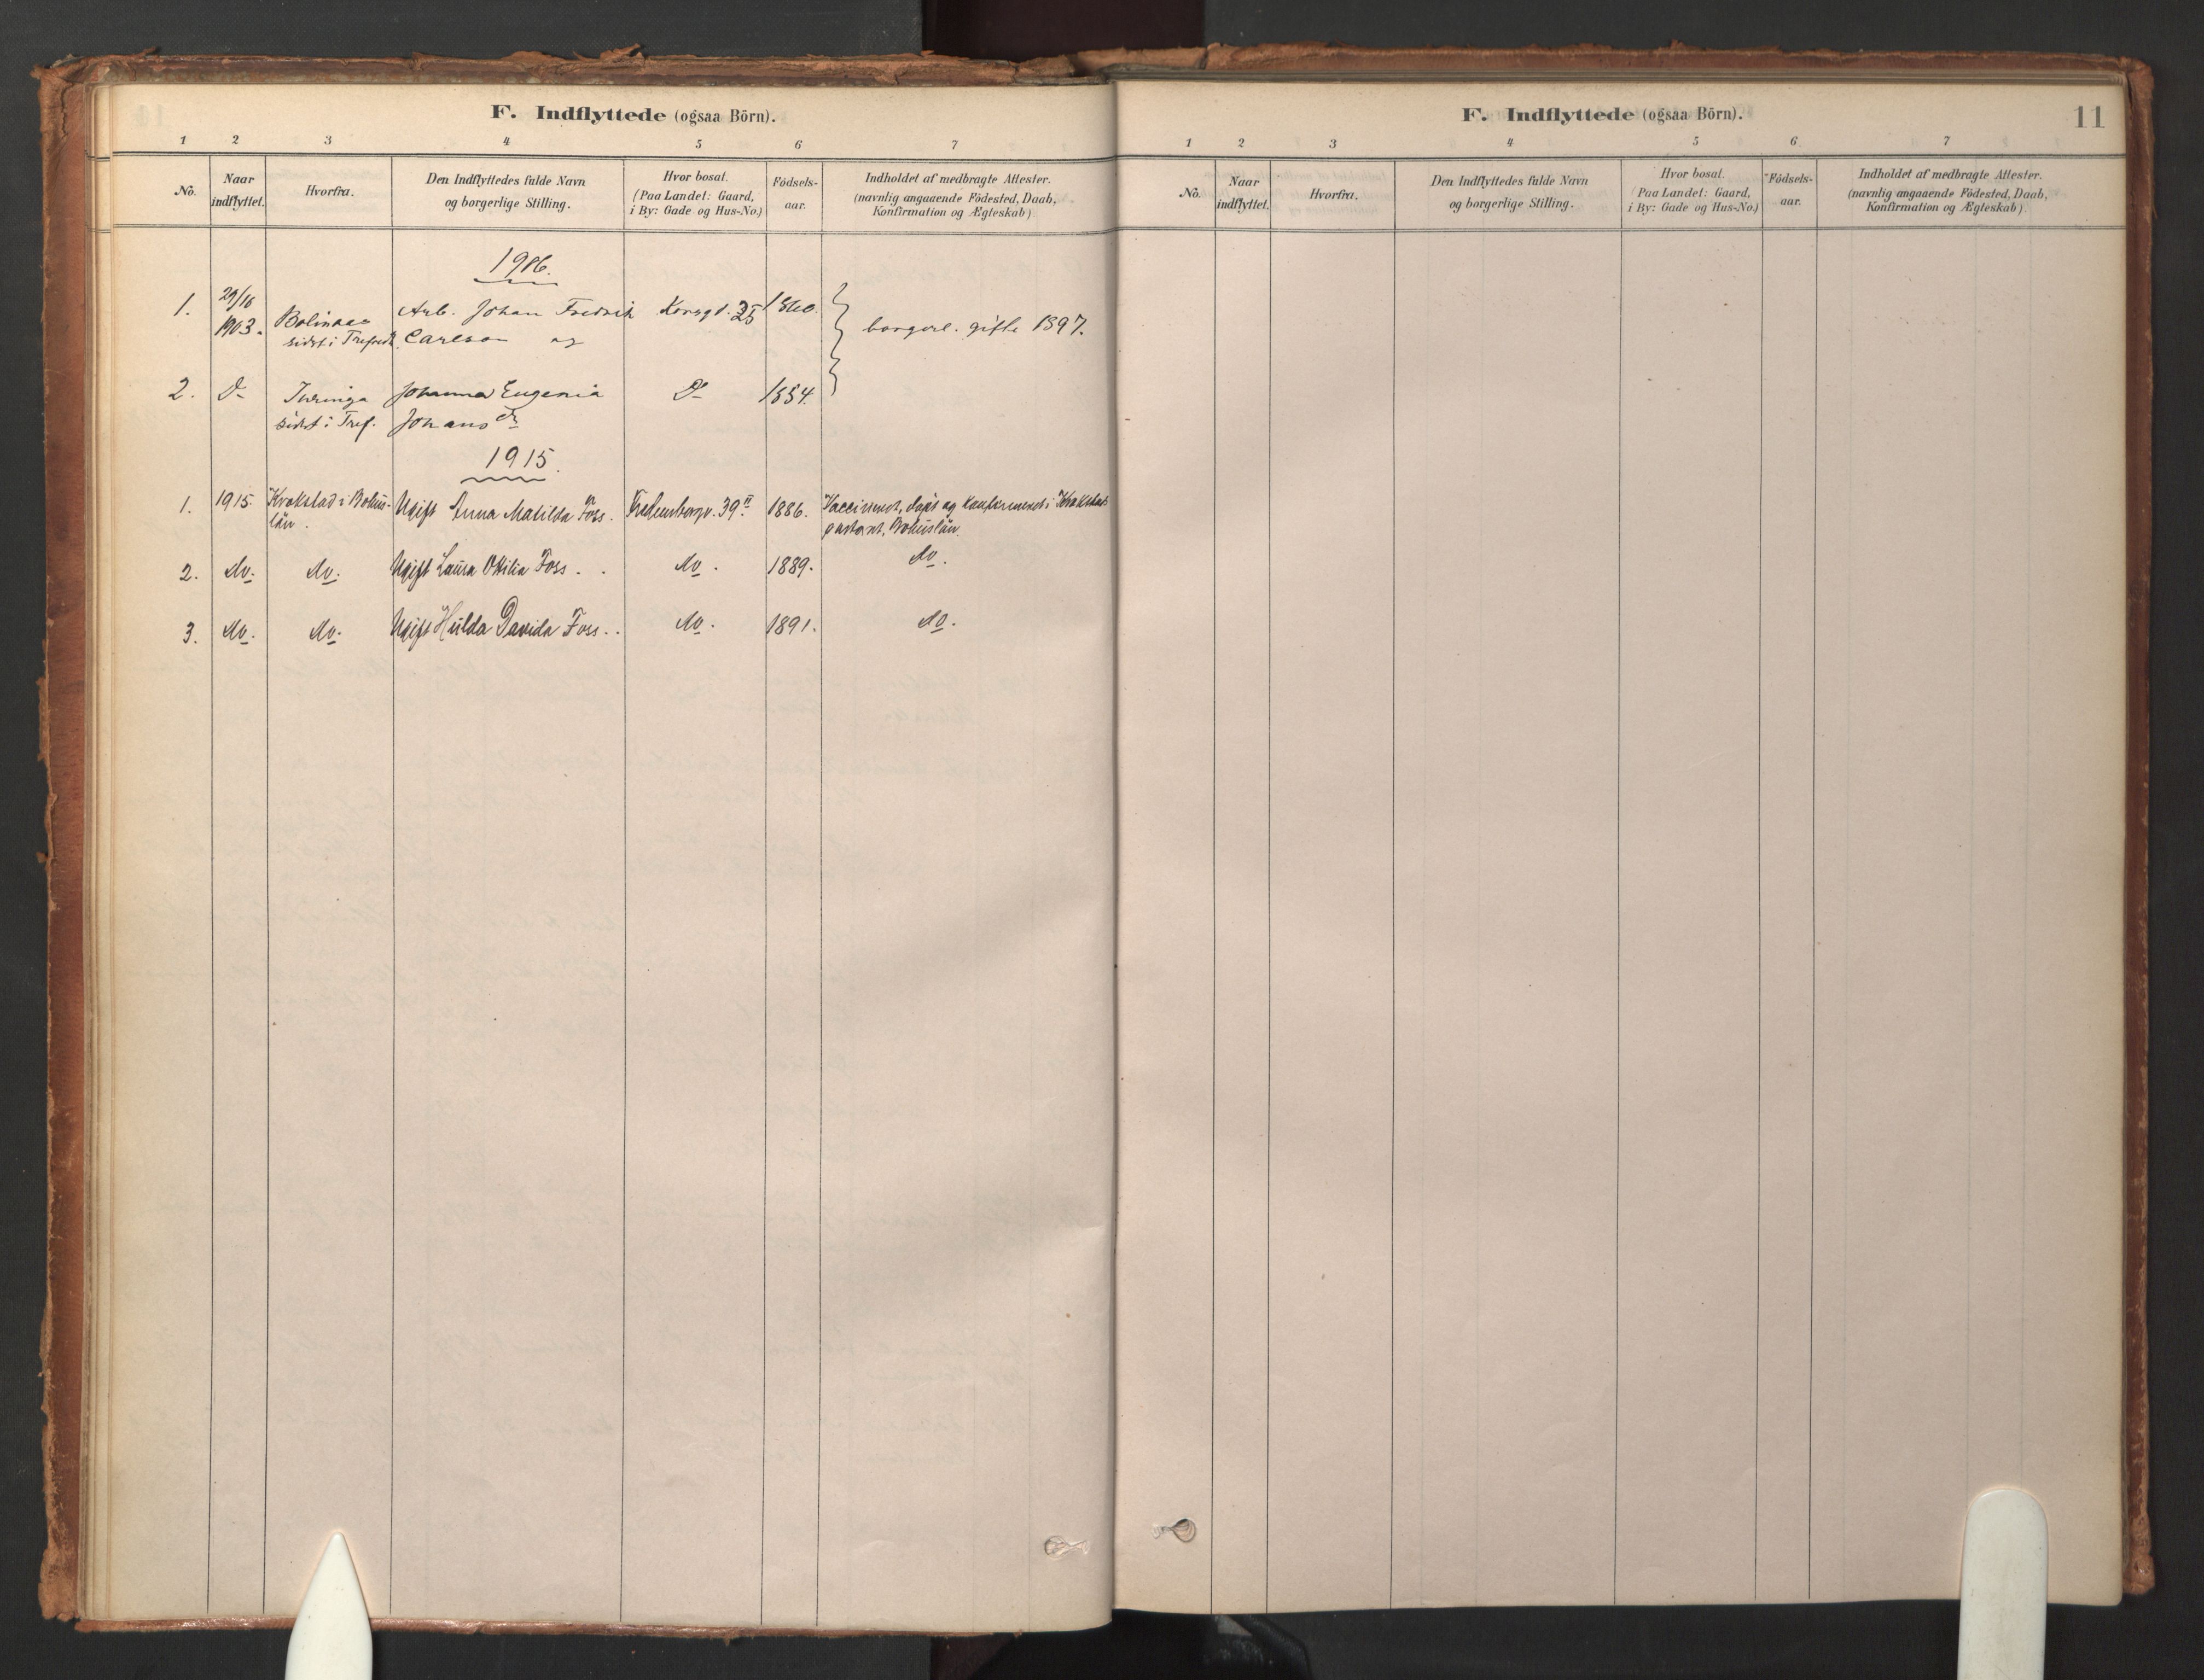 F. Indflyttede (ogsaa Börn).
1 2 3 4 5 6 7
No. Naar indflyttet. Hvorfra. Den Indflyttedes fulde Navn og borgerlige Stilling. Hvor bosat. (Paa Landet: Gaard, i By: Gade og Hus-No.) Födsels-aar. Indholdet af medbragte Attester. (navnlig angaaende Födested, Daab, Konfirmation og Ægteskab).
1906.
1. 29/10 Arb. Johan Fredrik Korsgd. 25 1860.
1903. borgerl. gifte 1897.
sidst i Carlson og
2. Do Johanna Eugenia Do 1854.
sidst i Tref. Johansdr
1915.
1. 1915. Krokstad i Bohus- Ugift Anna Matilda Foss. 39 II 1886. Vaccineret, døpt og konfirmeret i Krokstad
län. pastorat, Bohuslän.
2. do. do. Ugift Laura Otilia Foss. do. 1889. do.
3. do. do. Ugift Hulda Davida Foss. do. 1891. do.
F. Indflyttede (ogsaa Börn). 11
1 2 3 4 5 6 7
No. Naar indflyttet. Hvorfra. Den Indflyttedes fulde Navn og borgerlige Stilling. Hvor bosat. (Paa Landet: Gaard, i By: Gade og Hus-No.) Födsels-aar. Indholdet af medbragte Attester. (navnlig angaaende Födested, Daab, Konfirmation og Ægteskab).